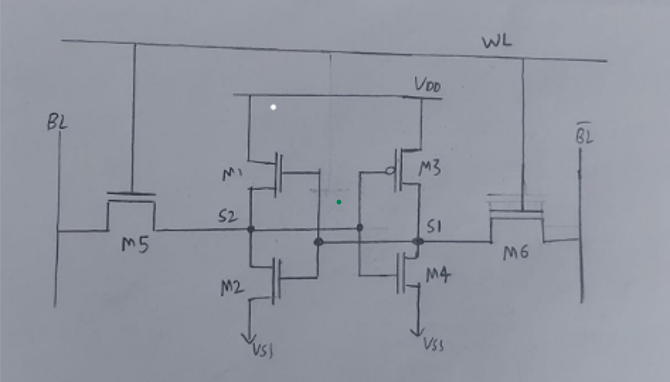 WL
VDD
BL
B̅L̅
M1
M3
S2
S1
M5
M6
M2
M4
VSS
VSS